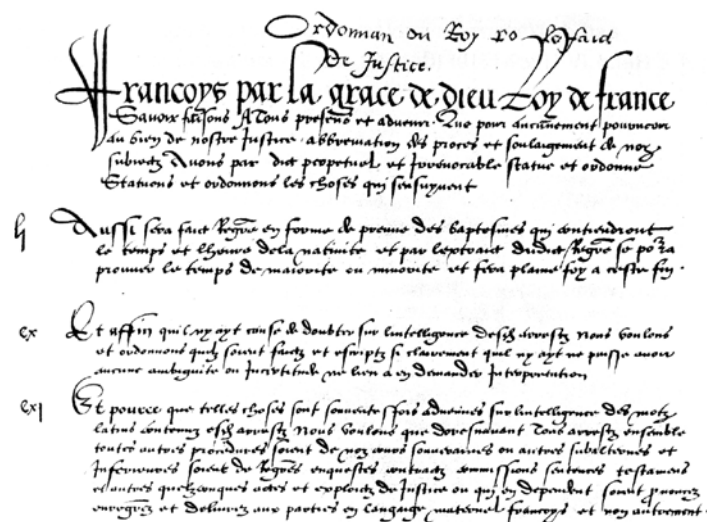 Ordonnan du Roy po le faid
de Justice.
Francoys par la grace de dieu Roy de france
Savoir faisons A Tous presens et advenir Que pour aucunement pourveoir
au bien de nostre Justice abbreviation des proces et soulaigement de noz
subiectz Avons par edict perpetuel et Irrevocable statue et ordonne
Statuons et ordonnons les choses qui sensuyvent
lj Aussi sera faict Regre en forme de preuve des baptesmes qui contiendront
le temps et lheure dela nativite et par lextraict dudict Regre se porra
prouver le temps de maiorite ou minorite et fera plaine foy a ceste fin.
cx Et affin quil ny ayt cause de doubter sur lintelligence desdz arrestz Nous voulons
et ordonnons quilz soient faictz et escriptz si clairement quil ny ayt ne puisse avoir
aucune ambiguite ou Incertitude ne lieu a en demander Interpretation
cxj Et pource que telles choses sont souventesfois advenues sur lintelligence des motz
latins contenuz esdz arrestz Nous voulons que doresnavant Tous arrestz ensemble
toutes autres procedures soient de noz cours souveraines ou autres subalternes et
Inferieures soient de Regres enquestes contractz commissions sentences testamens
et autres quelzconques actes et exploictz de Justice ou qui en dependent soient prononcez
enregrez et delivrez aux parties en langaige maternel francoys et non autrement.